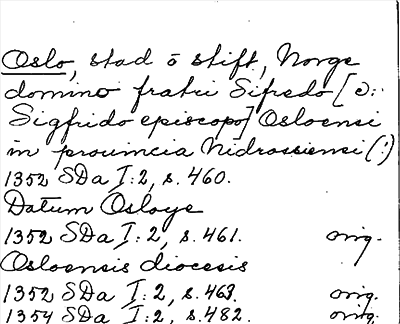 Oslo, stad o stift, Norge
domino fratri Sifredo [ɔ::
Sigfrido episcopo] Osloensi
in prouincia Nidrosiensi (!)
1352 SDa I:2, s. 460.
Datum Osloye
1352 SDa I:2, s. 461. orig.
Osloensis diocesis
1352 SDa I:2, s. 463. orig.
1354 SDa I:2, s. 482. orig.